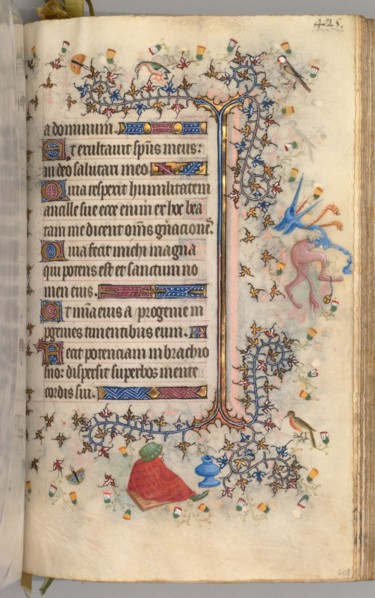 425.
a dominum.
Et exultauit spūs meus:
in deo salutari meo
Quia respexit humilitatem
ancille sue ecce enim et hoc bea
tam me dicent om̄s gn̄acionēs
Quia fecit michi magna
qui potens est et sanctum no
men eius.
Et mīa eius a progenie in
progenies timentibus eum.
Fecit potenciam in brachio
suo: dispersit superbos mente
cordis sui.